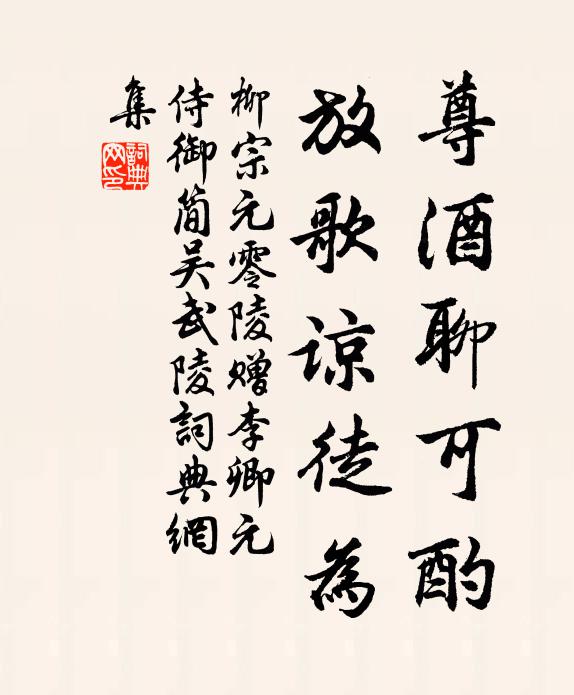 尊酒聊可酌
放歌谅徒為
柳宗元零陵赠李卿元
侍御简吴武陵詞典網
集
詞典網印